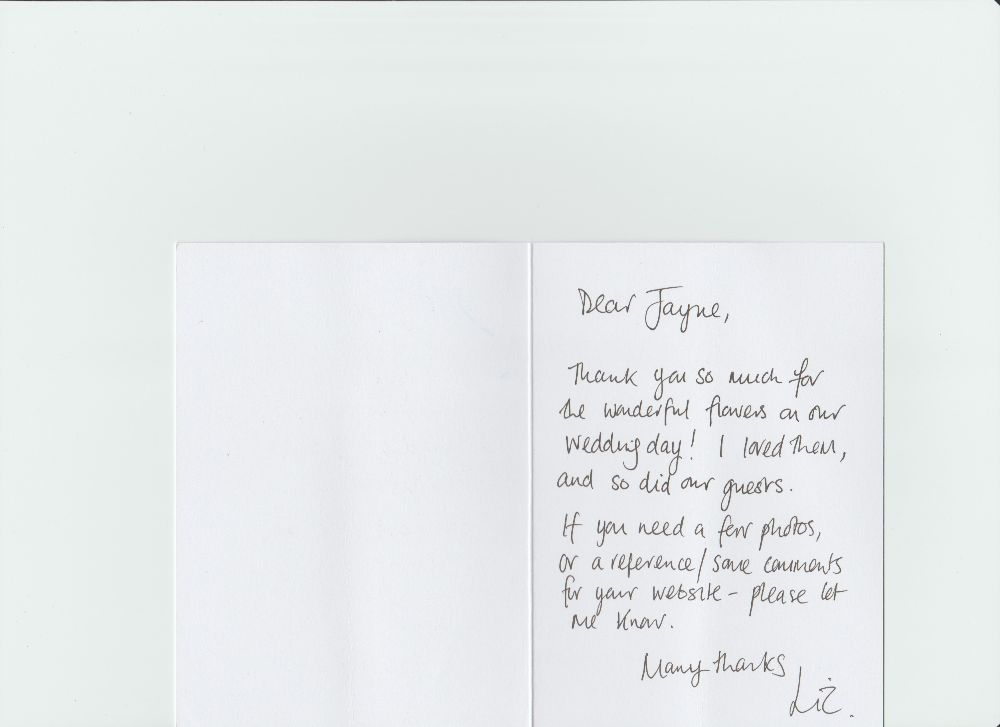 Dear Jayne,
Thank you so much for
the wonderful flowers on our
wedding day! I loved them,
and so did our guests.
If you need a few photos,
or a reference/some comments
for your website - please let
me know.
Many thanks
Liz.